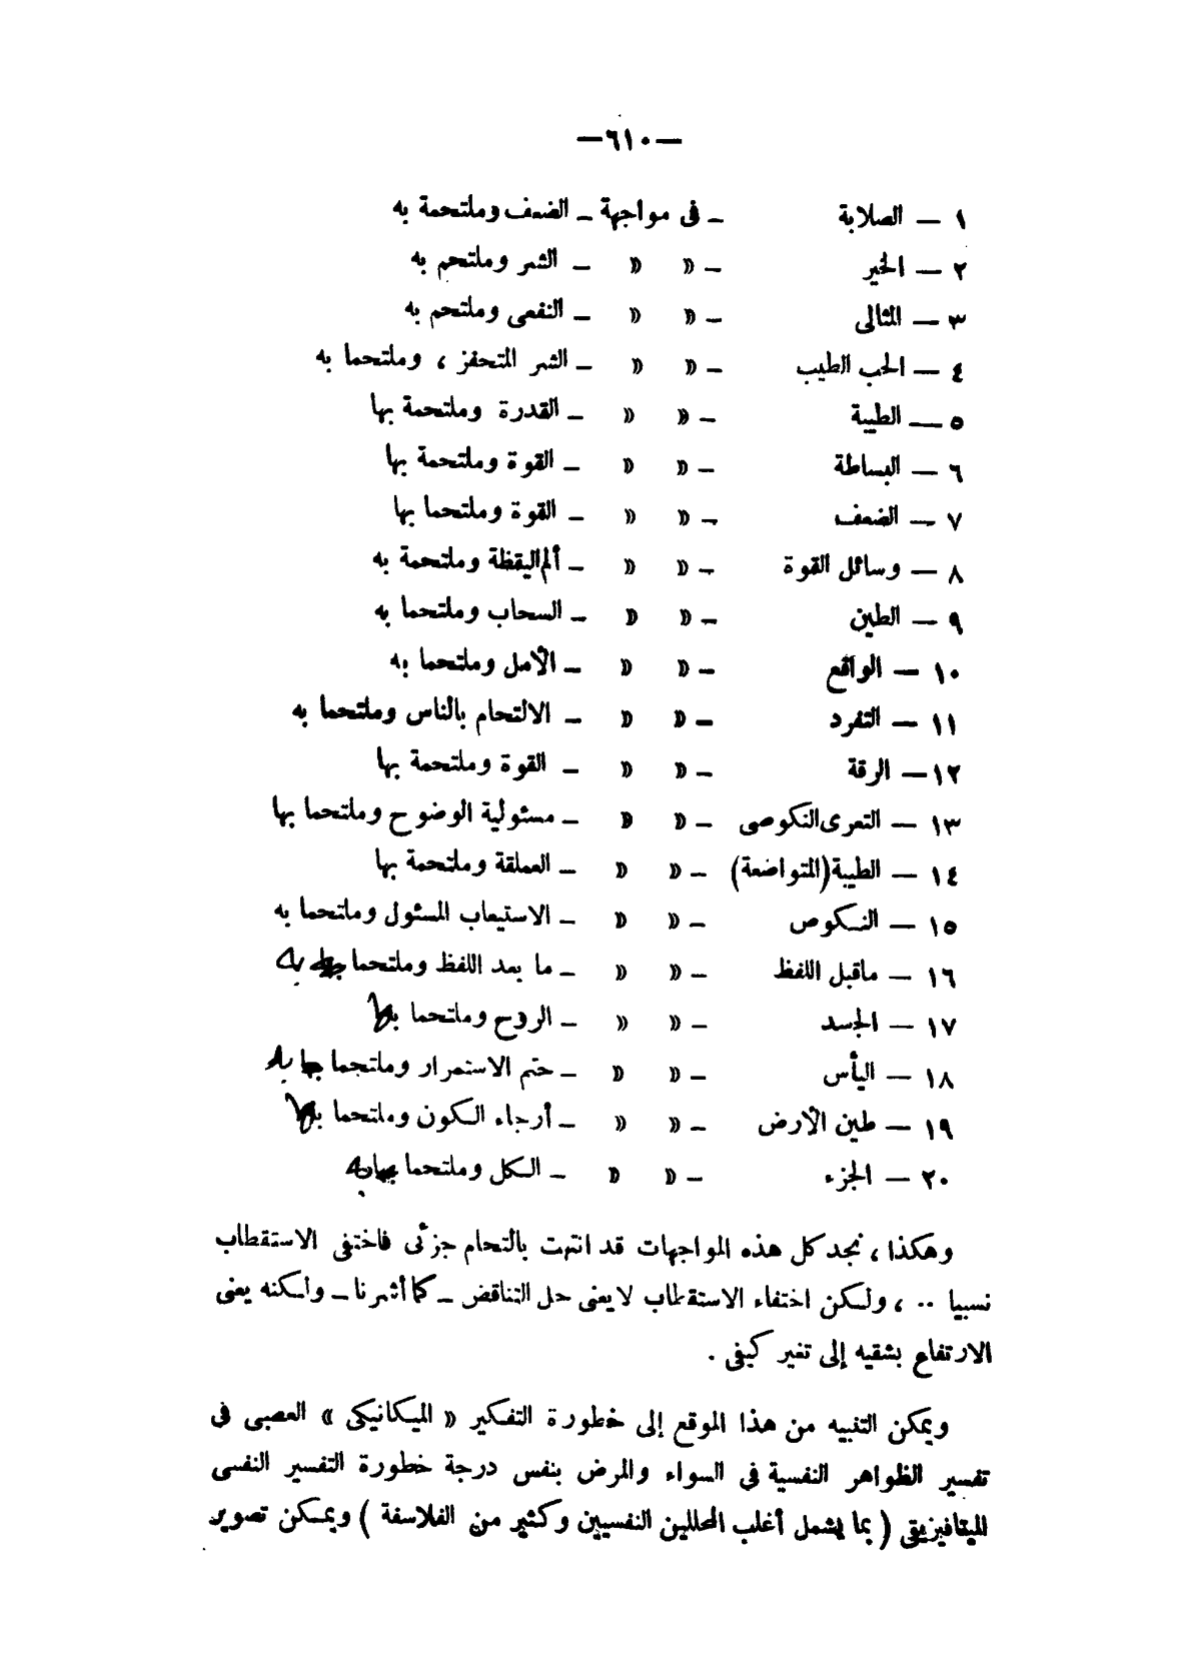 —٦١٠—
١ — الصلابة – فى مواجهة – الضعف وملتحمة به
٢ — الخير – » » – الشر وملتحم به
٣ — المثالى – » » – النفعى وملتحم به
٤ — الحب الطيب – » » – الشر المتحفز ، وملتحما به
٥ — الطيبة – » » – القدرة وملتحمة بها
٦ — البساطة – » » – القوة وملتحمة بها
٧ — الضعف – » » – القوة وملتحما بها
٨ — وسائل القوة – » » – ألم اليقظة وملتحمة به
٩ — الطين – » » – السحاب وملتحما به
١٠ — الواقع – » » – الأمل وملتحما به
١١ — التفرد – » » – الالتحام بالناس وملتحما به
١٢ — الرقة – » » – القوة وملتحمة بها
١٣ — التعرى النكوصى – » » – مسئولية الوضوح وملتحما بها
١٤ — الطيبة (المتواضعة) – » » – العملقة وملتحمة بها
١٥ — النكوص – » » – الاستيعاب المسئول وملتحما به
١٦ — ماقبل اللفظ – » » – ما بعد اللفظ وملتحما به
١٧ — الجسد – » » – الروح وملتحما بها
١٨ — اليأس – » » – حتم الاستمرار وملتحما به
١٩ — طين الأرض – » » – أرجاء الكون وملتحما بها
٢٠ — الجزء – » » – الكل وملتحما به
وهكذا ، نجد كل هذه المواجهات قد انتهت بالتحام جزئى فاختفى الاستقطاب
نسبيا .. ، ولكن اختفاء الاستقطاب لا يعنى حل التناقض – كما أشرنا – ولكنه يعنى
الارتفاع بشقيه إلى تغير كيفى .
ويمكن التنبيه من هذا الموقع إلى خطورة التفكير « الميكانيكى » العصبى فى
تفسير الظواهر النفسية فى السواء والمرض بنفس درجة خطورة التفسير النفسى
الميتافيزيقى ( بما يشمل أغلب المحللين النفسيين وكثير من الفلاسفة ) ويمكن تصوير